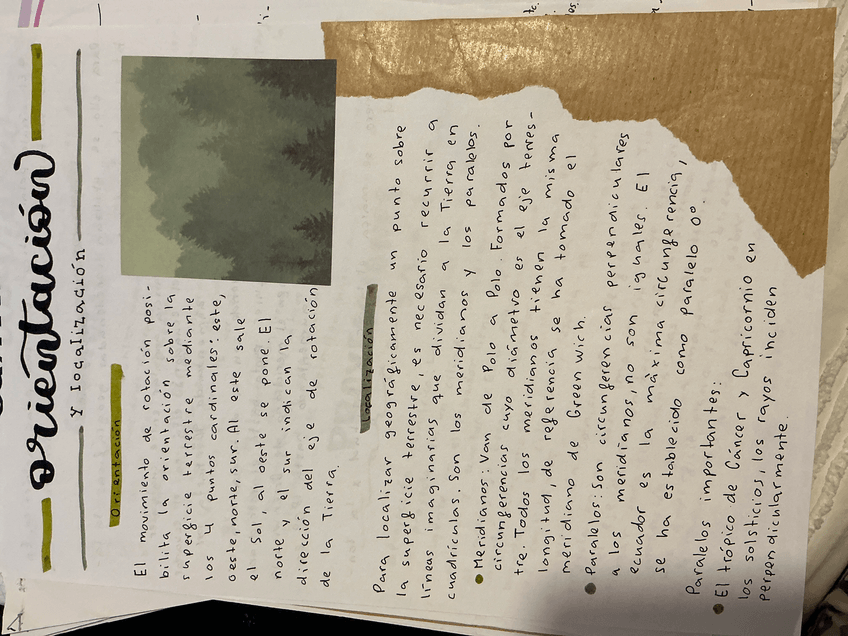 orientación
Y localización
Orientación
El movimiento de rotación posi-
bilita la orientación sobre la
superficie terrestre mediante
los 4 puntos cardinales: este,
oeste, norte, sur. Al este sale
el Sol, al oeste se pone. El
norte y el sur indican la
dirección del eje de rotación
de la Tierra.
Localización
Para localizar geográficamente un punto sobre
la superficie terrestre, es necesario recurrir a
líneas imaginarias que dividan a la Tierra en
cuadrículas. Son los meridianos y los paralelos.
Meridianos: Van de Polo a Polo. Formados por
circunferencias cuyo diámetro es el eje terres-
tre. Todos los meridianos tienen la misma
longitud, de referencia se ha tomado el
meridiano de Greenwich.
Paralelos: Son circunferencias perpendiculares
a los meridianos, no son iguales. El
ecuador es la máxima circunferencia,
se ha establecido como paralelo 0º.
Paralelos importantes:
El trópico de Cáncer y Capricornio en
los solsticios, los rayos inciden
perpendicularmente.